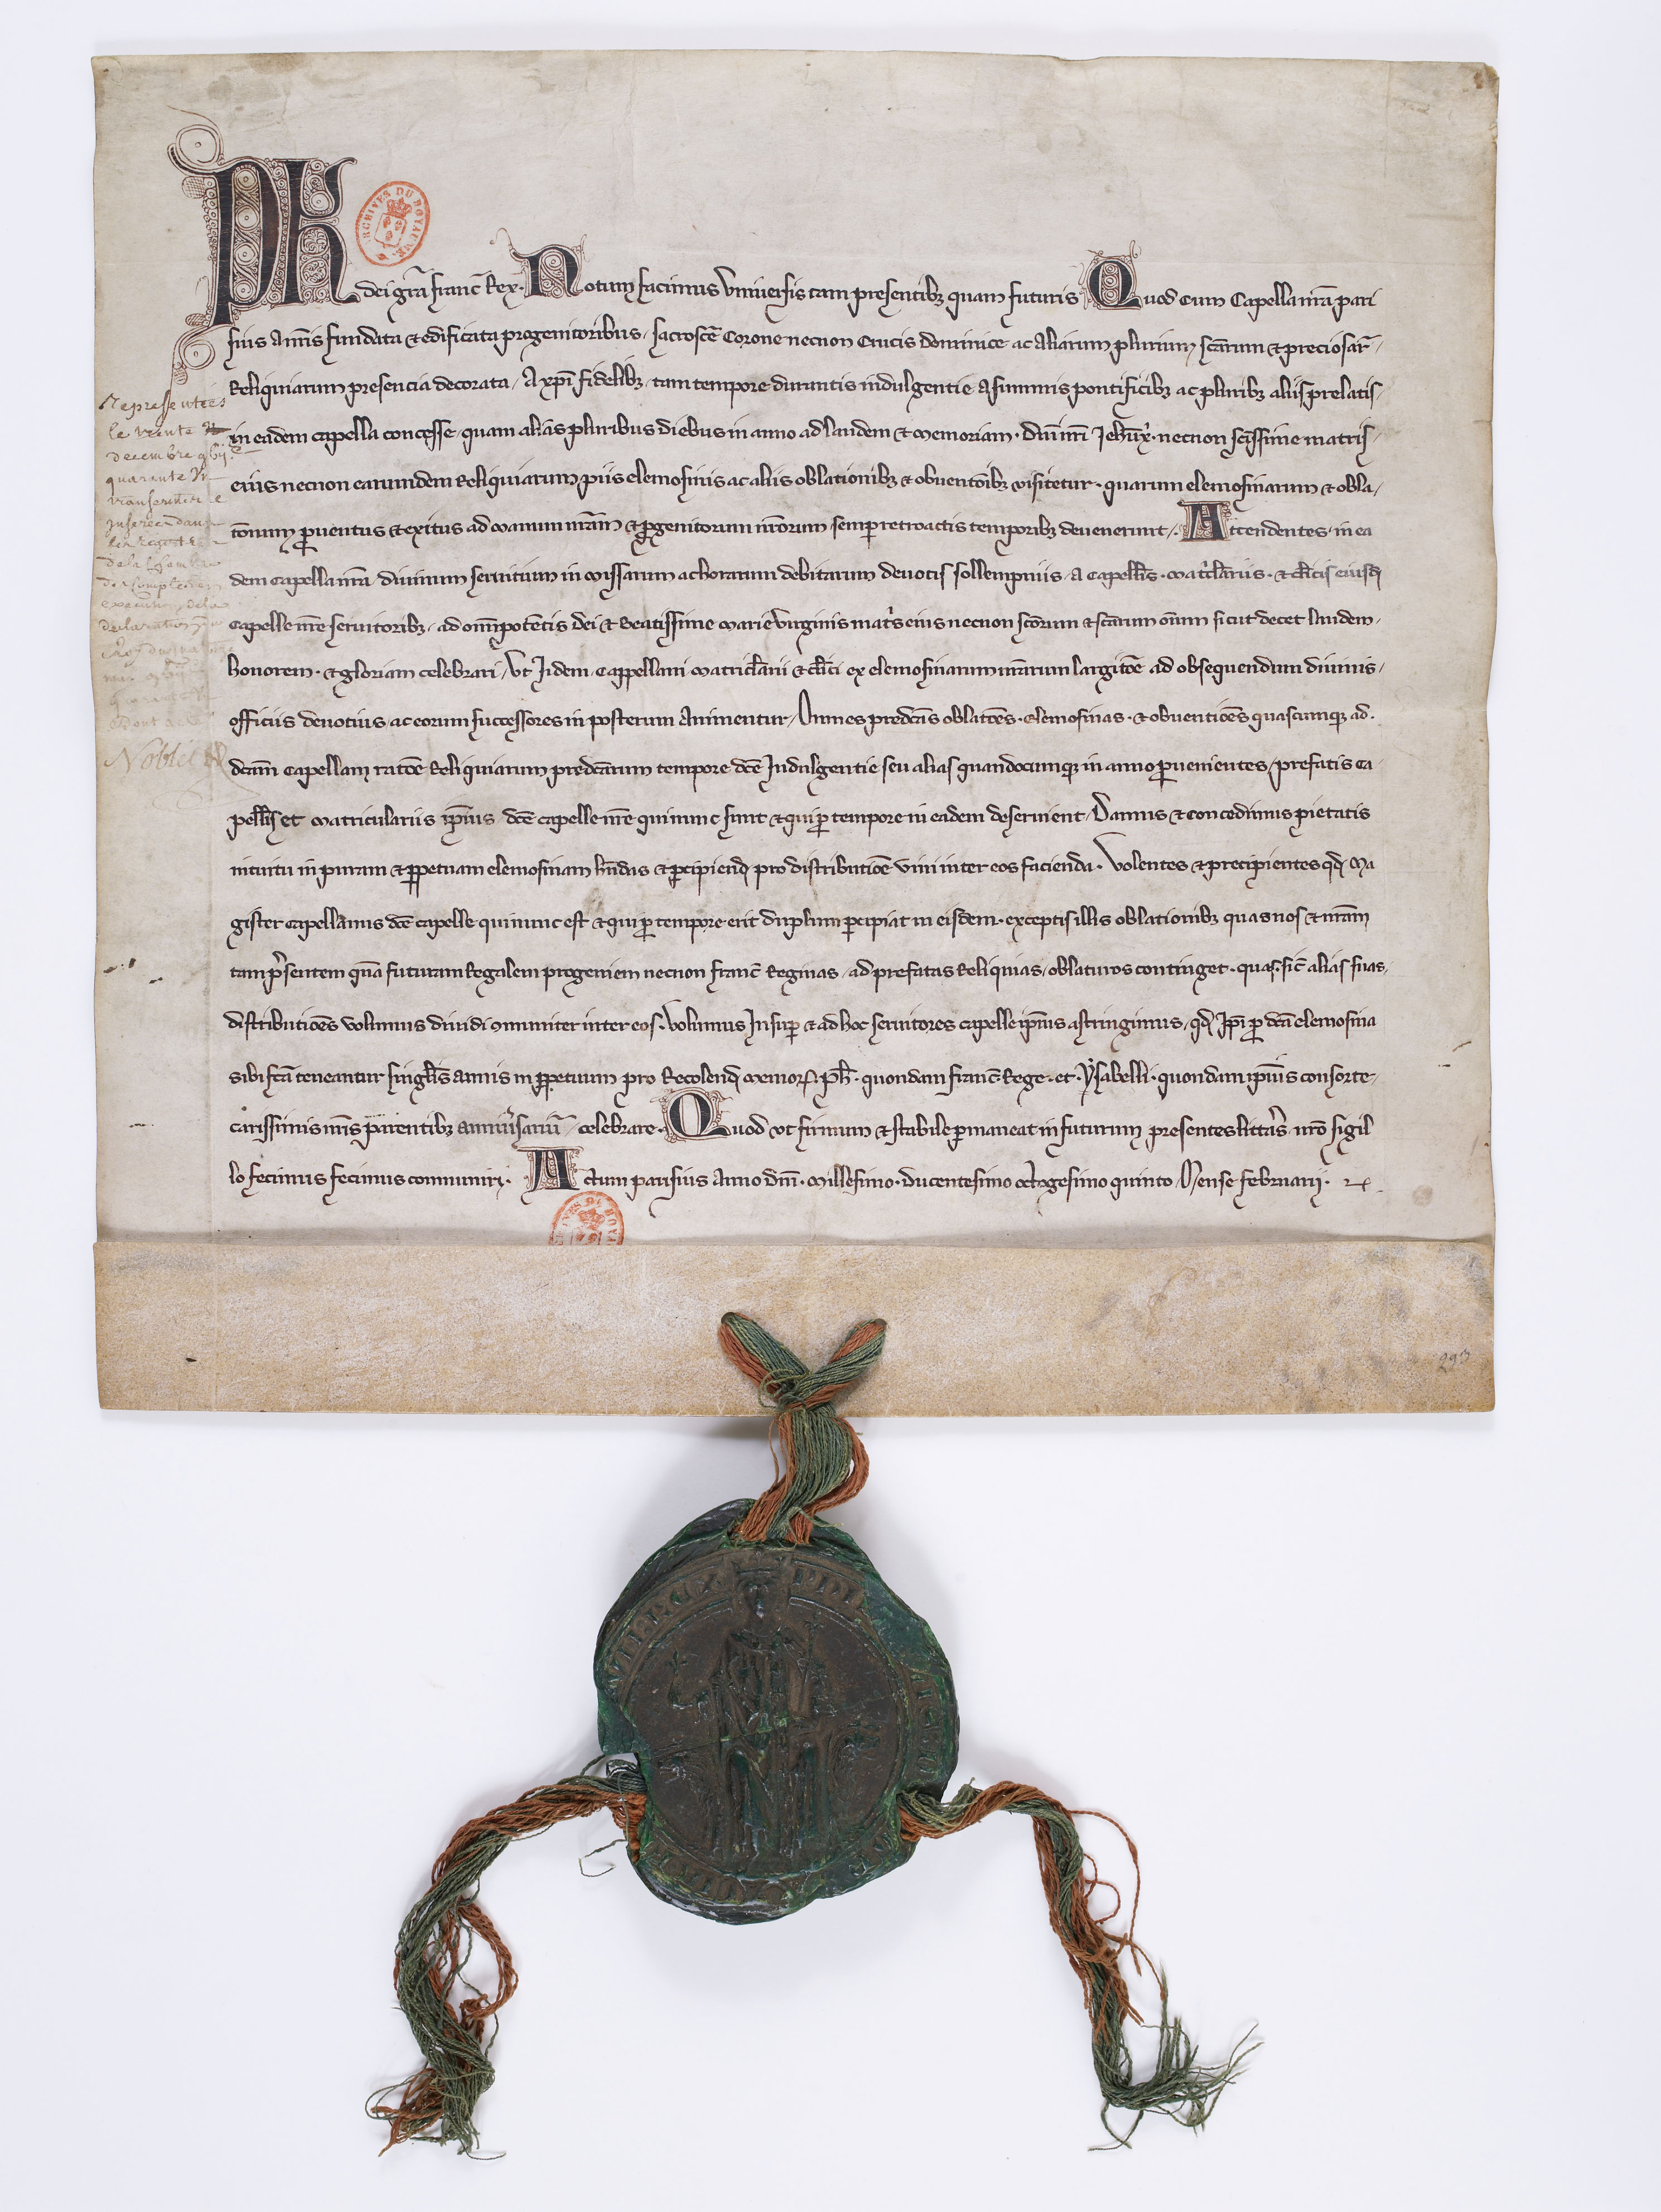 Ph dei gr̄a franc̄ Rex. Notum facimus Vniuersis tam presentibꝫ quam futuris Quod cum Capella nr̄a pari
sius a nr̄is fundata & edificata progenitoribus, sacrosc̄e Corone necnon Crucis dominice ac aliarum plurium sc̄arum & preciosar̄
Reliquiarum presencia decorata, A xp̄i fidelibꝫ, tam tempore durantis indulgentie a summis pontificibꝫ ac pluribꝫ aliis prelatis
in eadem capella concesse, quam alias pluribus diebus in anno ad laudem & memoriam. dn̄i nr̄i Jeh̄u xp̄i. necnon sc̄issime matris
eius necnon earumdem Reliquiarum piis elemosinis ac aliis oblationibꝫ & obuentōibꝫ visitetur. quarum elemosinarum & obla
tōnum ꝓuentus & exitus ad manum nr̄am & ꝓgenitorum nr̄orum semꝑ retroactis temporibꝫ deuenerunt. Attendentes in ea
dem Capella nr̄a diuinum seruitium in missarum ac horarum debitarum deuotis sollempniis, a Capell̄is. mat̄clariis. & cl̄icis eiusdꝫ
Capelle nr̄e seruitoribꝫ, ad om̄ipotētis dei & Beatissime marie virginis mat̄s eius necnon sc̄orum & sc̄arum om̄um sicut decet laudem.
honorem. & gloriam celebrari, Vt Jidem Cappellani matricl̄arii & cl̄ici ex elemosinarum nr̄arum largitōe ad obsequendum diuinis
officiis deuotius, ac eorum successores in posterum Animentur, Omnes predc̄as oblatōes. elemosinas. & obuentiōes quascumqꝫ ad.
dc̄am Capellam ratōe Reliquiarum predc̄arum tempore dc̄e Jndulgentie seu alias quandocumqꝫ in anno ꝓuenientes, prefatis ca
pell̄is et matriculariis ip̄ius dc̄e capelle nr̄e qui nunc sunt & qui ꝓ tempore in eadem deseruient, Damus & concedimus pietatis
intuitu in puram & ꝑpetuam elemosinam hn̄das & ꝑcipiendꝫ pro distributiōe vini inter eos facienda. Volentes & precipientes qd̄ Ma
gister Capellanus dc̄e capelle qui nunc est & qui ꝓ tempore erit duplum ꝑcipiat in eisdem. exceptis illis oblationibꝫ quas nos & nr̄am
tam p̄sentem quā futuram Regalem progeniem necnon franc̄ Reginas, ad prefatas Reliquias, oblaturos continget. quas. sic̄ alias suas,
distributiōes Volumus diuidi ꝯmuniter inter eos. Volumus Jnsuꝑ & ad hoc seruitores capelle ip̄ius astringimus, qd̄ Jp̄i ꝓ dc̄a elemosina
sibi fc̄a teneantur singl̄is annis in ꝑpetuum pro Recolendꝫ memor̄. ph̄. quondam franc̄ Rege. et. Ysabelli. quondam ip̄ius consorte
carissimis nr̄is parentibꝫ anniu̾sariū, celebrare. Quod vt firmum & stabile ꝑmaneat in futurum presentes litt̄as nr̄o sigil
lo fecimus fecimus communiri. Actum parisius Anno dn̄i. millesimo. ducentesimo octogesimo quinto, Mense februarii.
Representées
le trente
decembre
quarante
Inserée dans
de la Chambre
des Comptes
declaration
Noblet
ARCHIVES DU ROYAUME
293